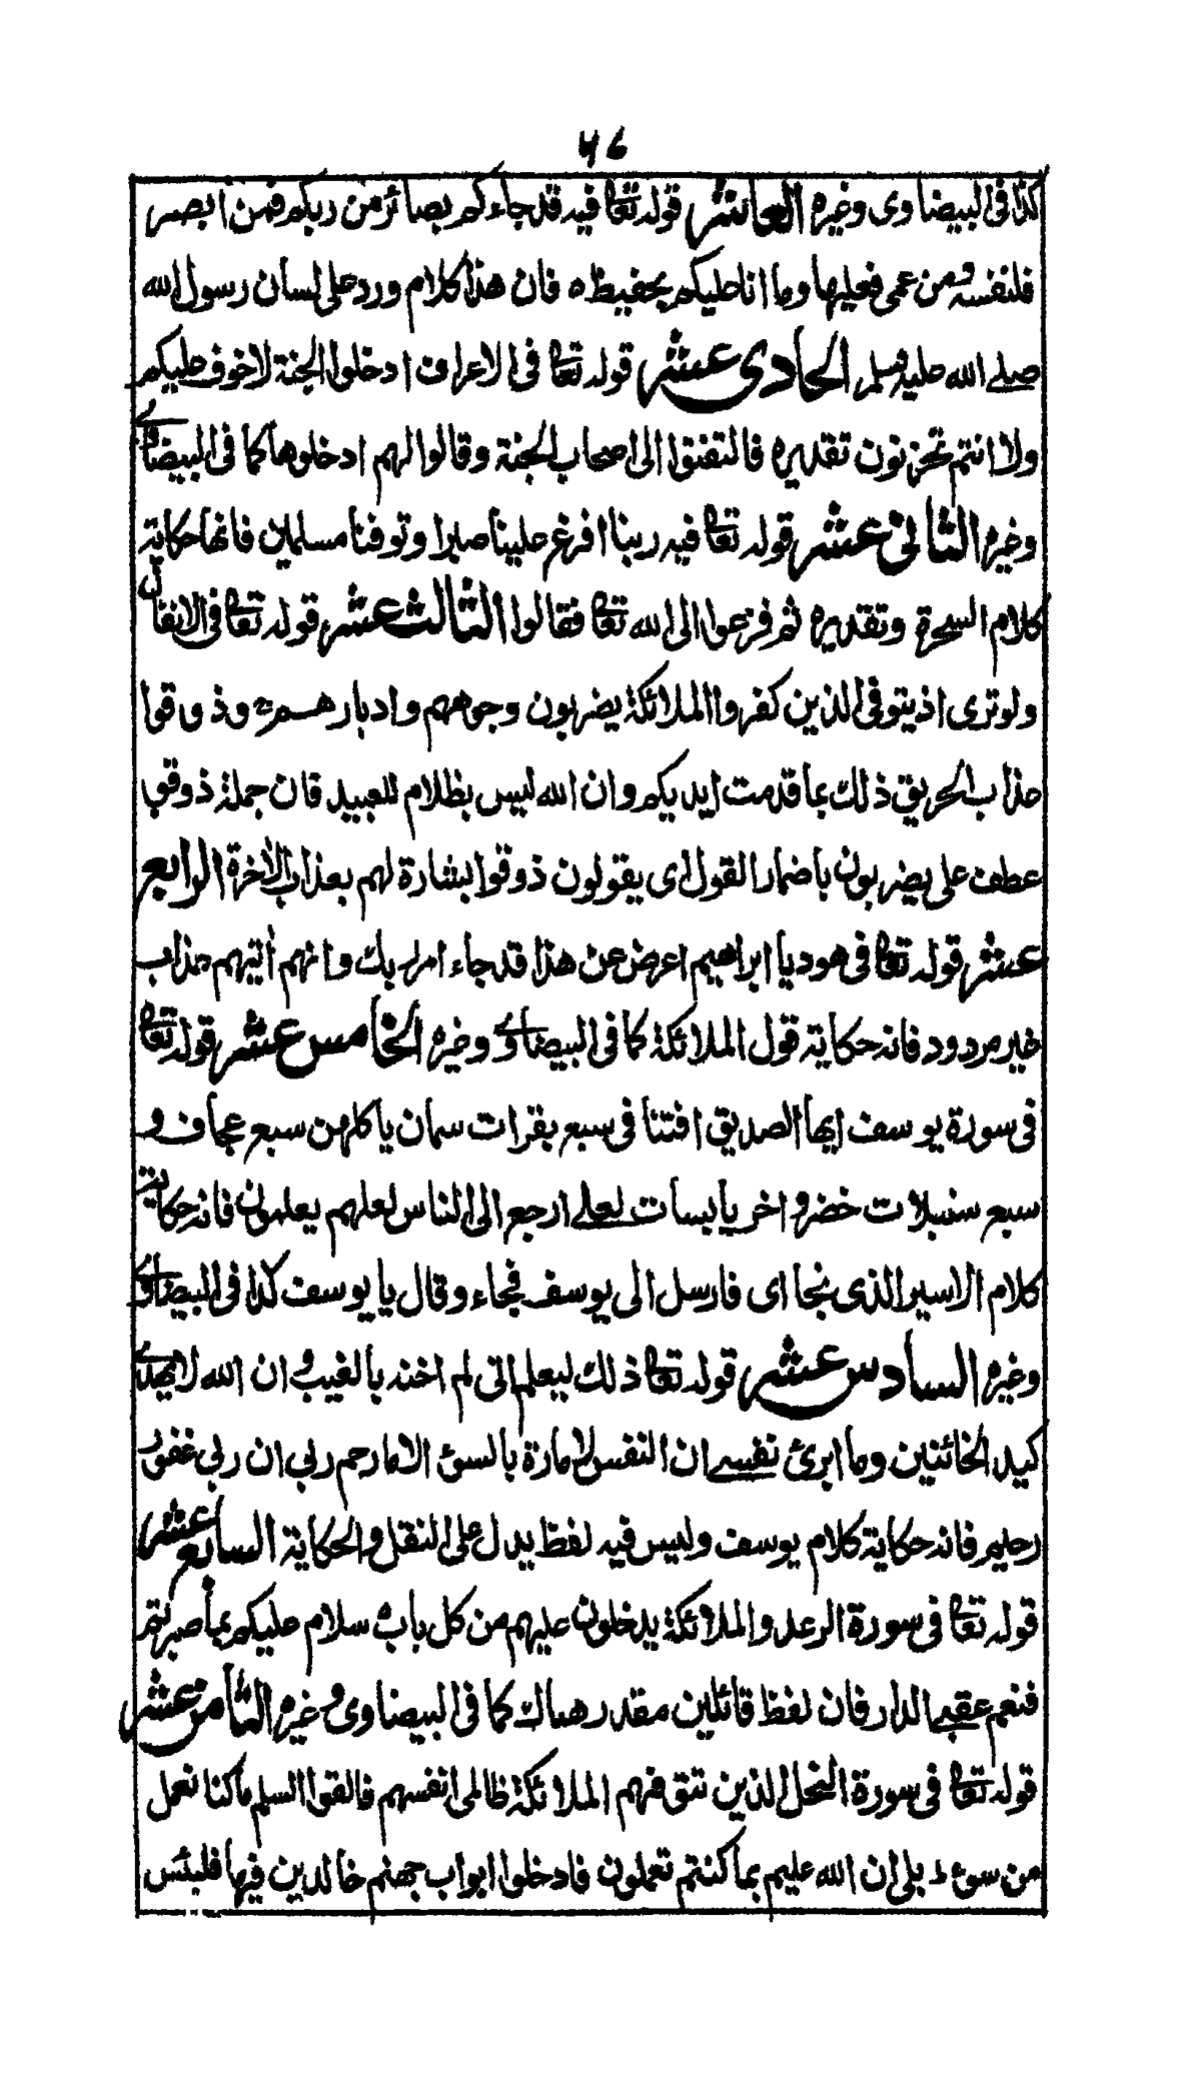 ۵۶
كذا فى البيضاوى وغيره العاشر قوله تعالى فيه قد جاءكم بصائر من ربكم فمن ابصر
فلنفسه ومن عمى فعليها وما انا عليكم بحفيظ ه فان هذا كلام ورد على لسان رسول الله
صلے الله عليه وسلم الحادى عشر قوله تعالى فى الاعراف ادخلوا الجنة لا خوف عليكم
ولا انتم تحزنون تقديره فالتفتوا الى اصحاب الجنة وقالوا لهم ادخلوها كما فى البيضاوے
وغيره الثانى عشر قوله تعالى فيه ربنا افرغ علينا صبرا وتوفنا مسلمين فانها حكاية
كلام السحرة وتقديره ثم فزعوا الى الله تعالى فقالوا الثالث عشر قوله تعالى فى الانفال
ولو ترى اذ يتوفى الذين كفروا الملائكة يضربون وجوههم وادبارهم ج وذوقوا
عذاب الحريق ذلك بما قدمت ايديكم وان الله ليس بظلام للعبيد فان جملة ذوقوا
عطف على يضربون باضمار القول اى يقولون ذوقوا بشارة لهم بعذاب الاخرة الرابع
عشر قوله تعالى فى هود يا ابراهيم اعرض عن هذا قد جاء امر ربك وانهم اٰتيهم عذاب
غير مردود فانه حكاية قول الملائكة كما فى البيضاوے وغيره الخامس عشر قوله تعالى
فى سورة يوسف ايها الصديق افتنا فى سبع بقرات سمان ياكلهن سبع عجاف و
سبع سنبلات خضر واخر يابسات لعلے ارجع الى الناس لعلهم يعلمون فانه حكاية
كلام الاسير الذى نجا اى فارسل الى يوسف فجاء وقال يا يوسف كذا فى البيضاوے
وغيره السادس عشر قوله تعالى ذلك ليعلم انى لم اخنه بالغيب وان الله لا يهدے
كيد الخائنين وما ابرئ نفسے ان النفس لامارة بالسوء الا ما رحم ربى ان ربى غفور
رحيم فانه حكاية كلام يوسف وليس فيه لفظ يدل على النقل والحكاية السابع عشر
قوله تعالى فى سورة الرعد والملائكة يدخلون عليهم من كل باب ه سلام عليكم بما صبرتم
فنعم عقبے الدار فان لفظ قائلين مقدر هناك كما فى البيضاوى وغيره الثامن عشر
قوله تعالى فى سورة النحل الذين تتوفهم الملائكة ظالمى انفسهم فالقوا السلم ما كنا نعمل
من سوء ط بلى ان الله عليم بما كنتم تعملون فادخلوا ابواب جهنم خالدين فيها فلبئس